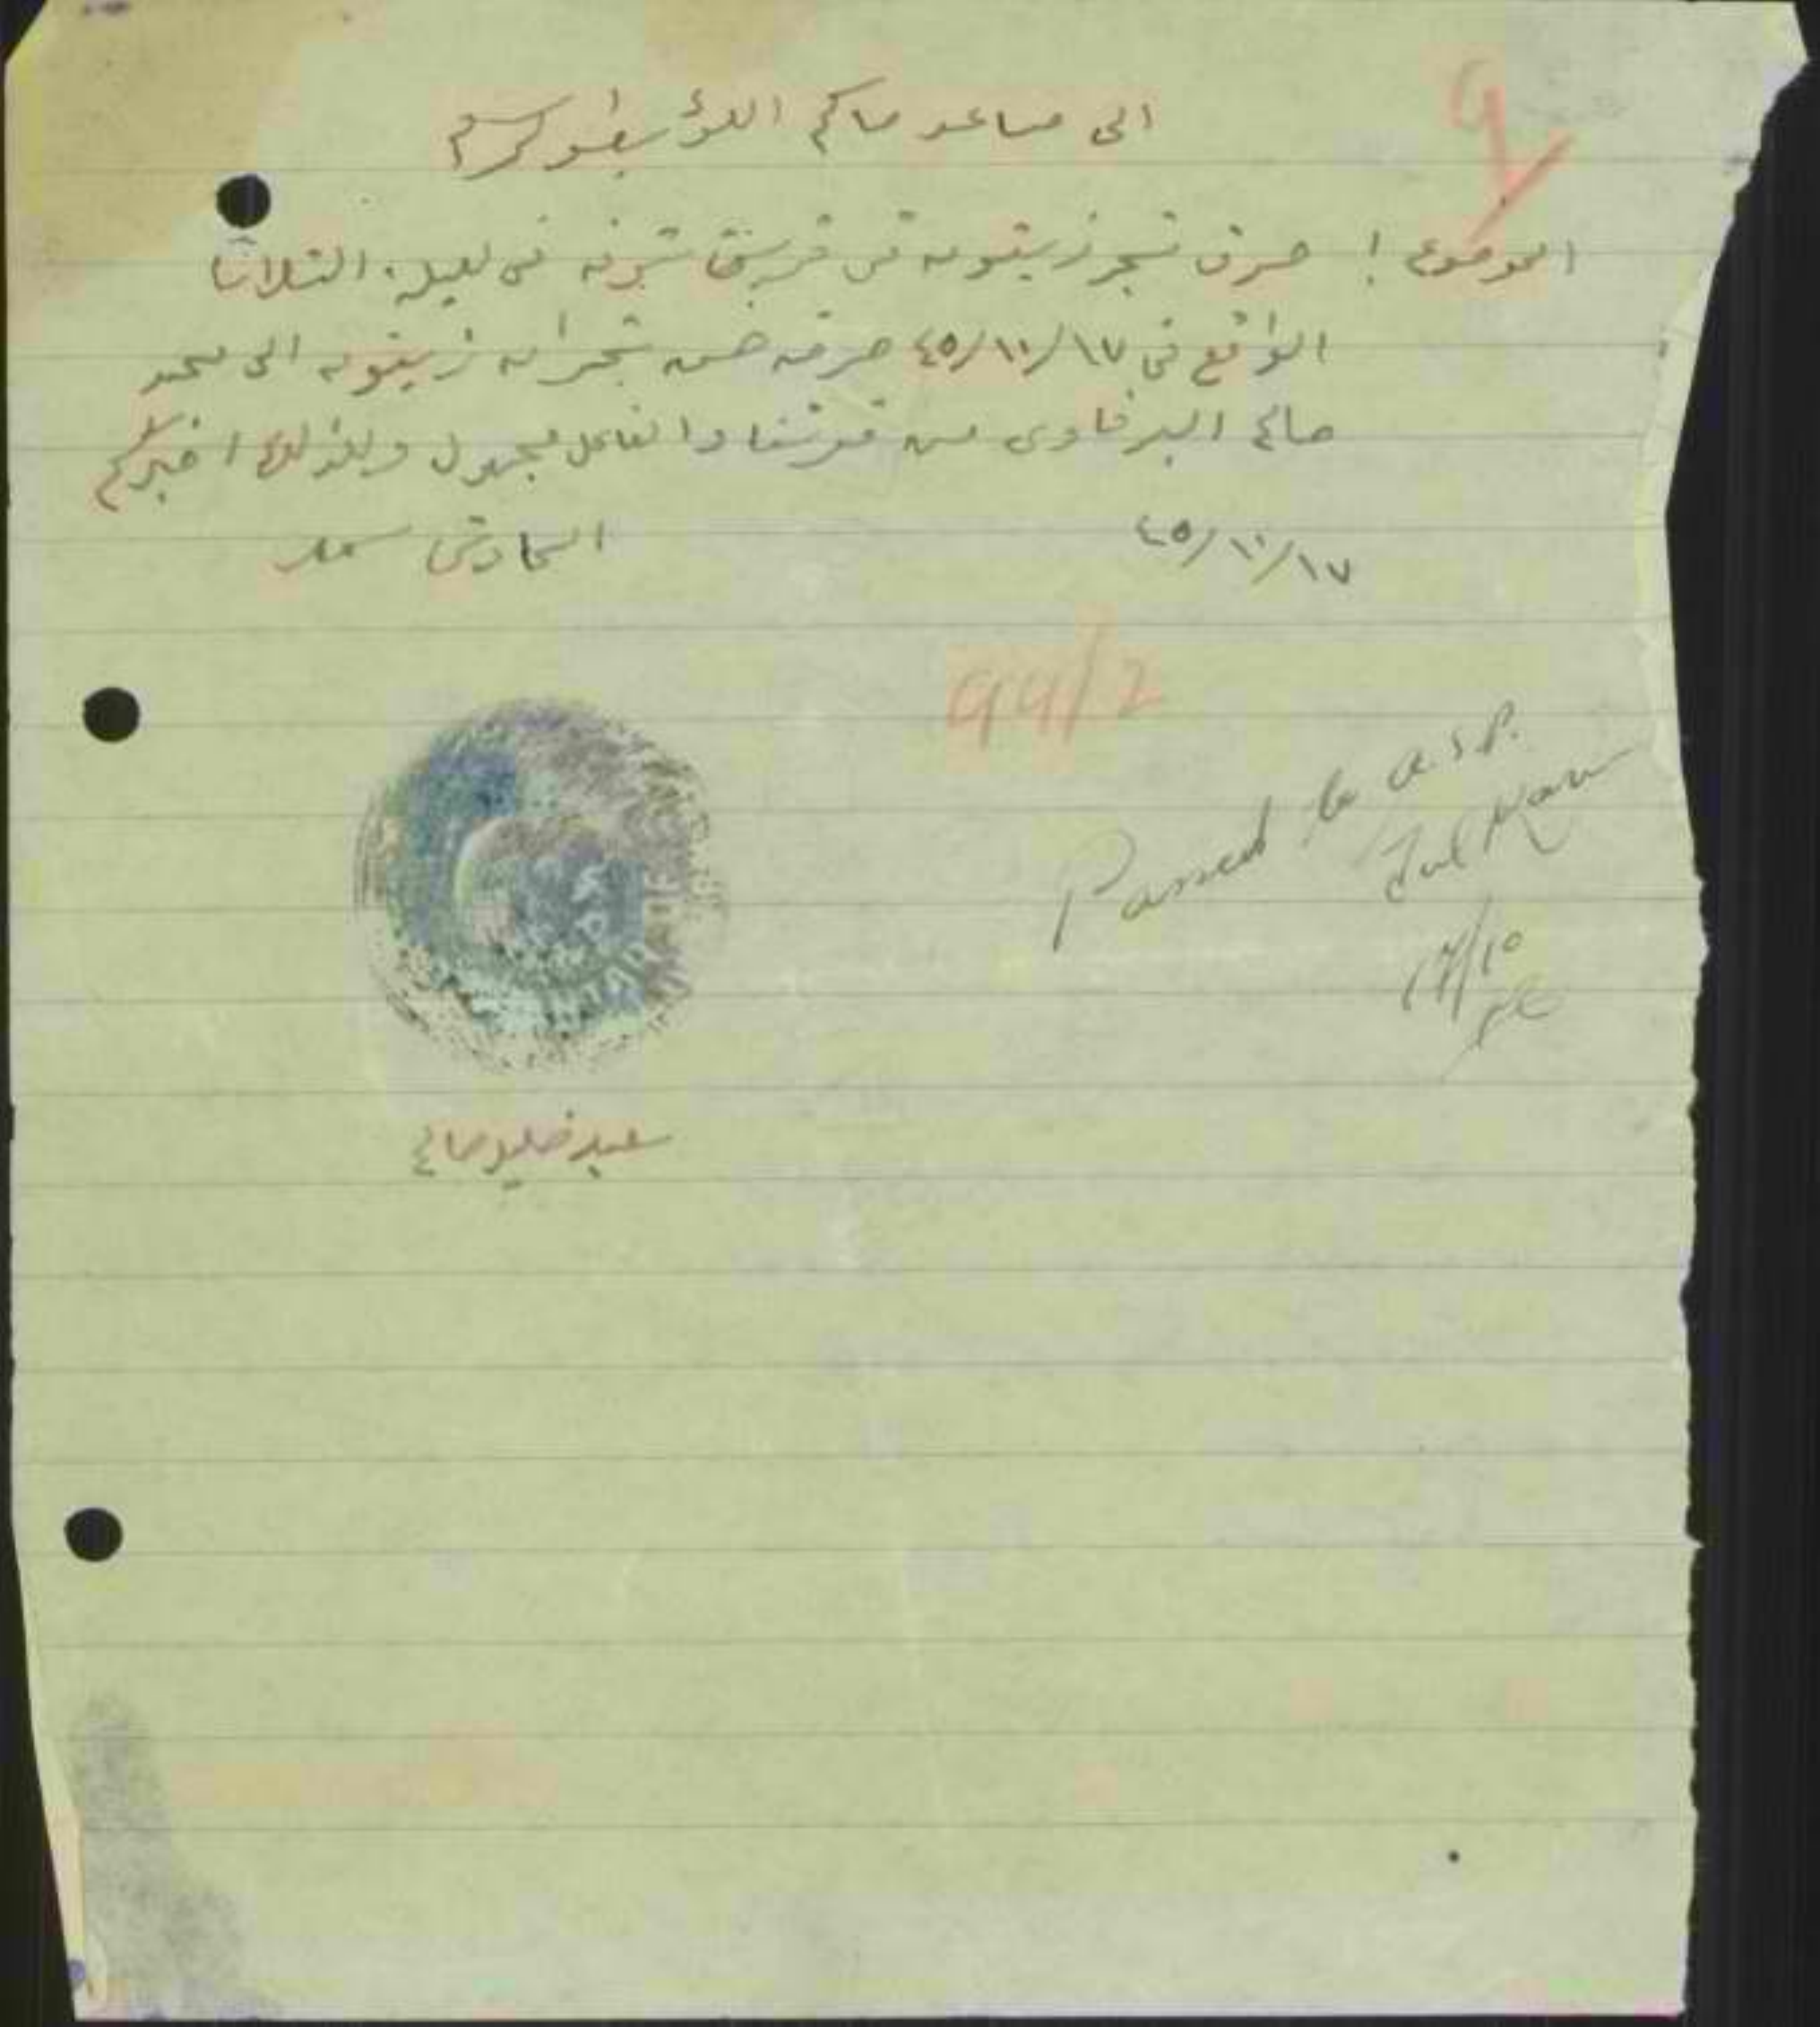 9
الى مساعد حاكم اللوا بطولكرم
الموضوع : حرق شجر زيتون في قريتنا شوفه في ليلة الثلاثا
الواقع في ١٧/١٠/٤٥ حرق خمس شجرات زيتون الى محمد
صالح البرقاوى من قريتنا والفاعل مجهول ولذلك اخبركم
١٧/١٠/٤٥
99/2
Passed to A.S.P.
Tul Karm
17/10
عبد صالح